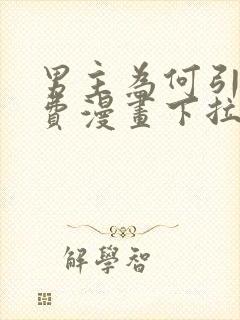 男主為何引
費漫畫下拉
解學智